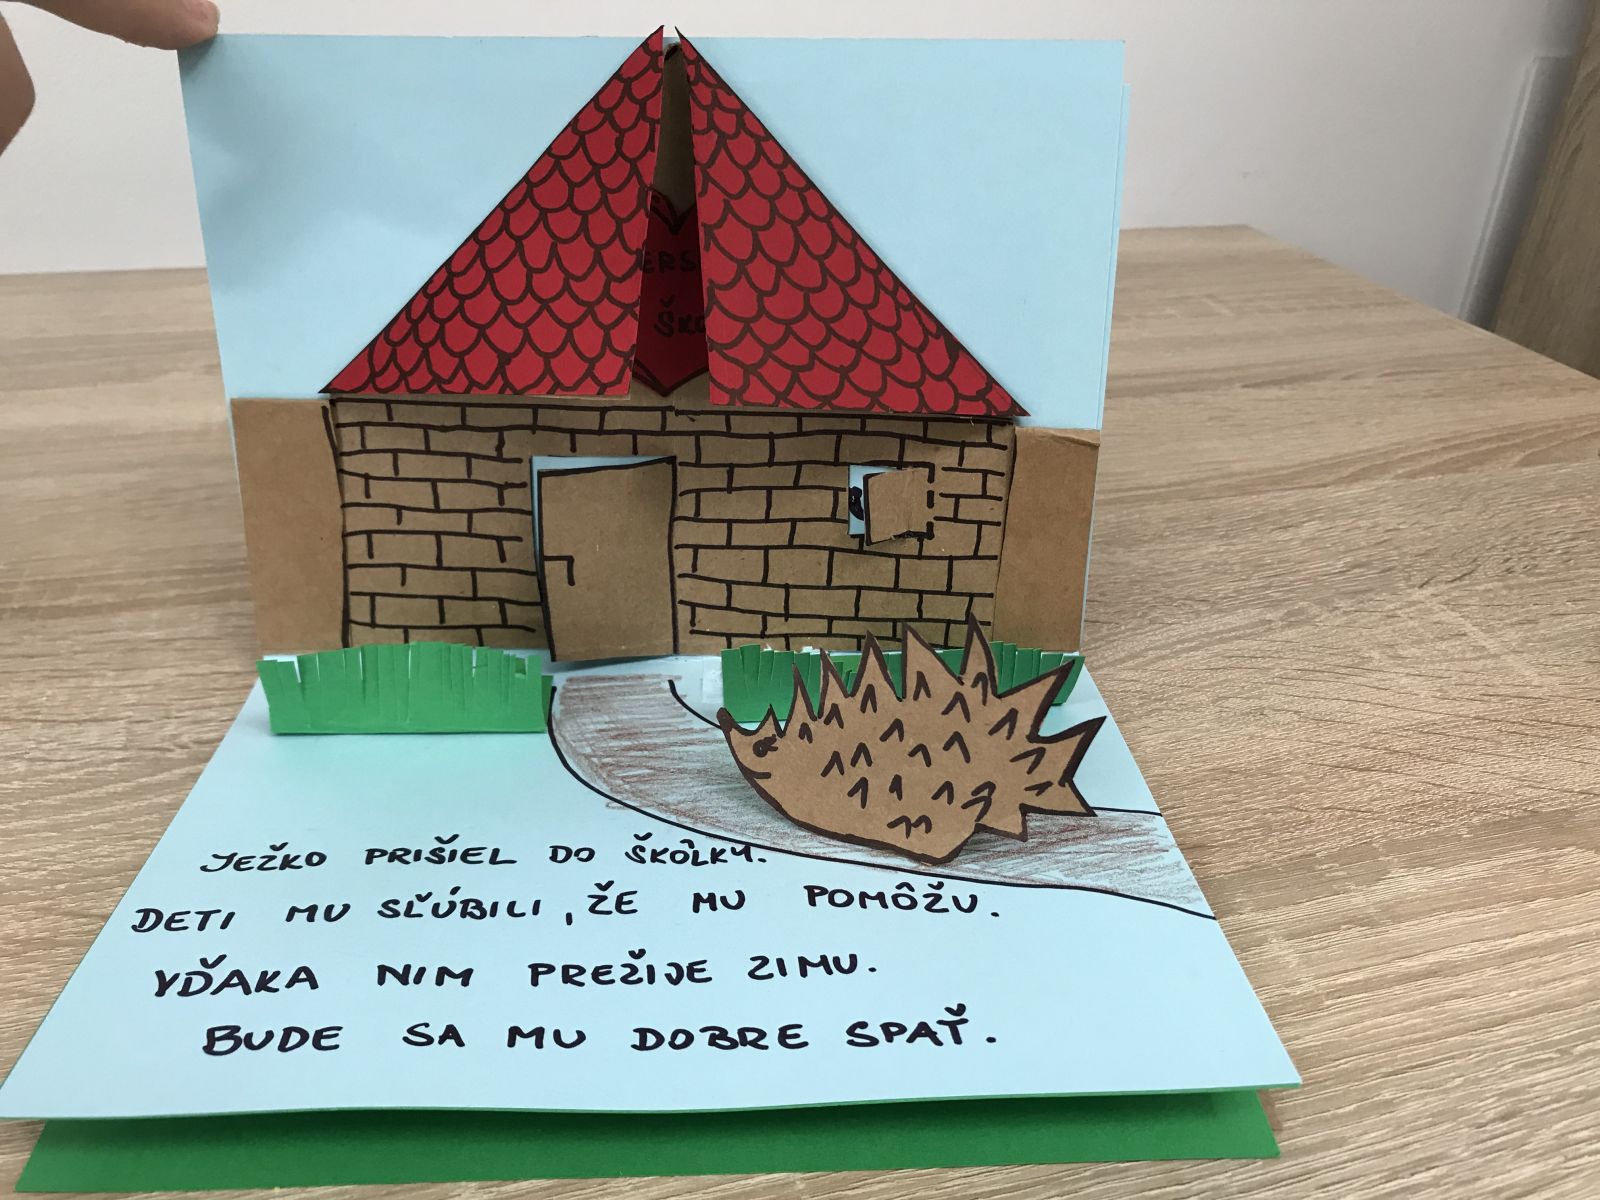 JEŽKO PRIŠIEL DO ŠKÔLKY.
DETI MU SĽÚBILI, ŽE MU POMÔŽU.
VĎAKA NIM PREŽIJE ZIMU.
BUDE SA MU DOBRE SPAŤ.